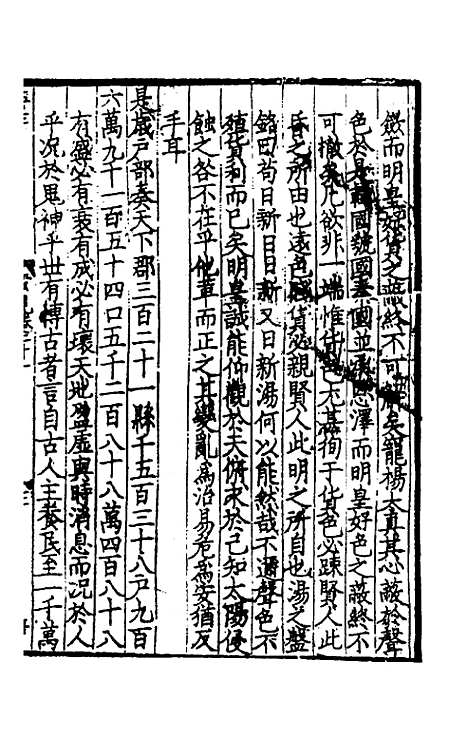 斂而明皇好貨之蔽終不可解矣寵楊太真其心蔽於聲
色於是韓國虢國秦國並承恩澤而明皇好色之蔽終不
可撤矣凡欲非一端惟貨色不甚徇于貨色必踈賢人此
昏之所由也遠色賤貨必親賢人此明之所自也湯之盤
銘曰苟日新日日新又日新湯何以能然哉不邇聲色不
殖貨利而已矣明皇誠能仰觀於天俯求於己知太陽侵
蝕之咎不在乎他革而正之其變亂為治易危為安猶反
手耳
是歲戶部奏天下郡三百二十一縣千五百三十八戶九百
六萬九千一百五十四口五千二百八十八萬四百八十八
有盛必有衰有成必有壞天地盈虛與時消息而况於人
乎况於鬼神乎世有博古者言自古人主養民至一千萬